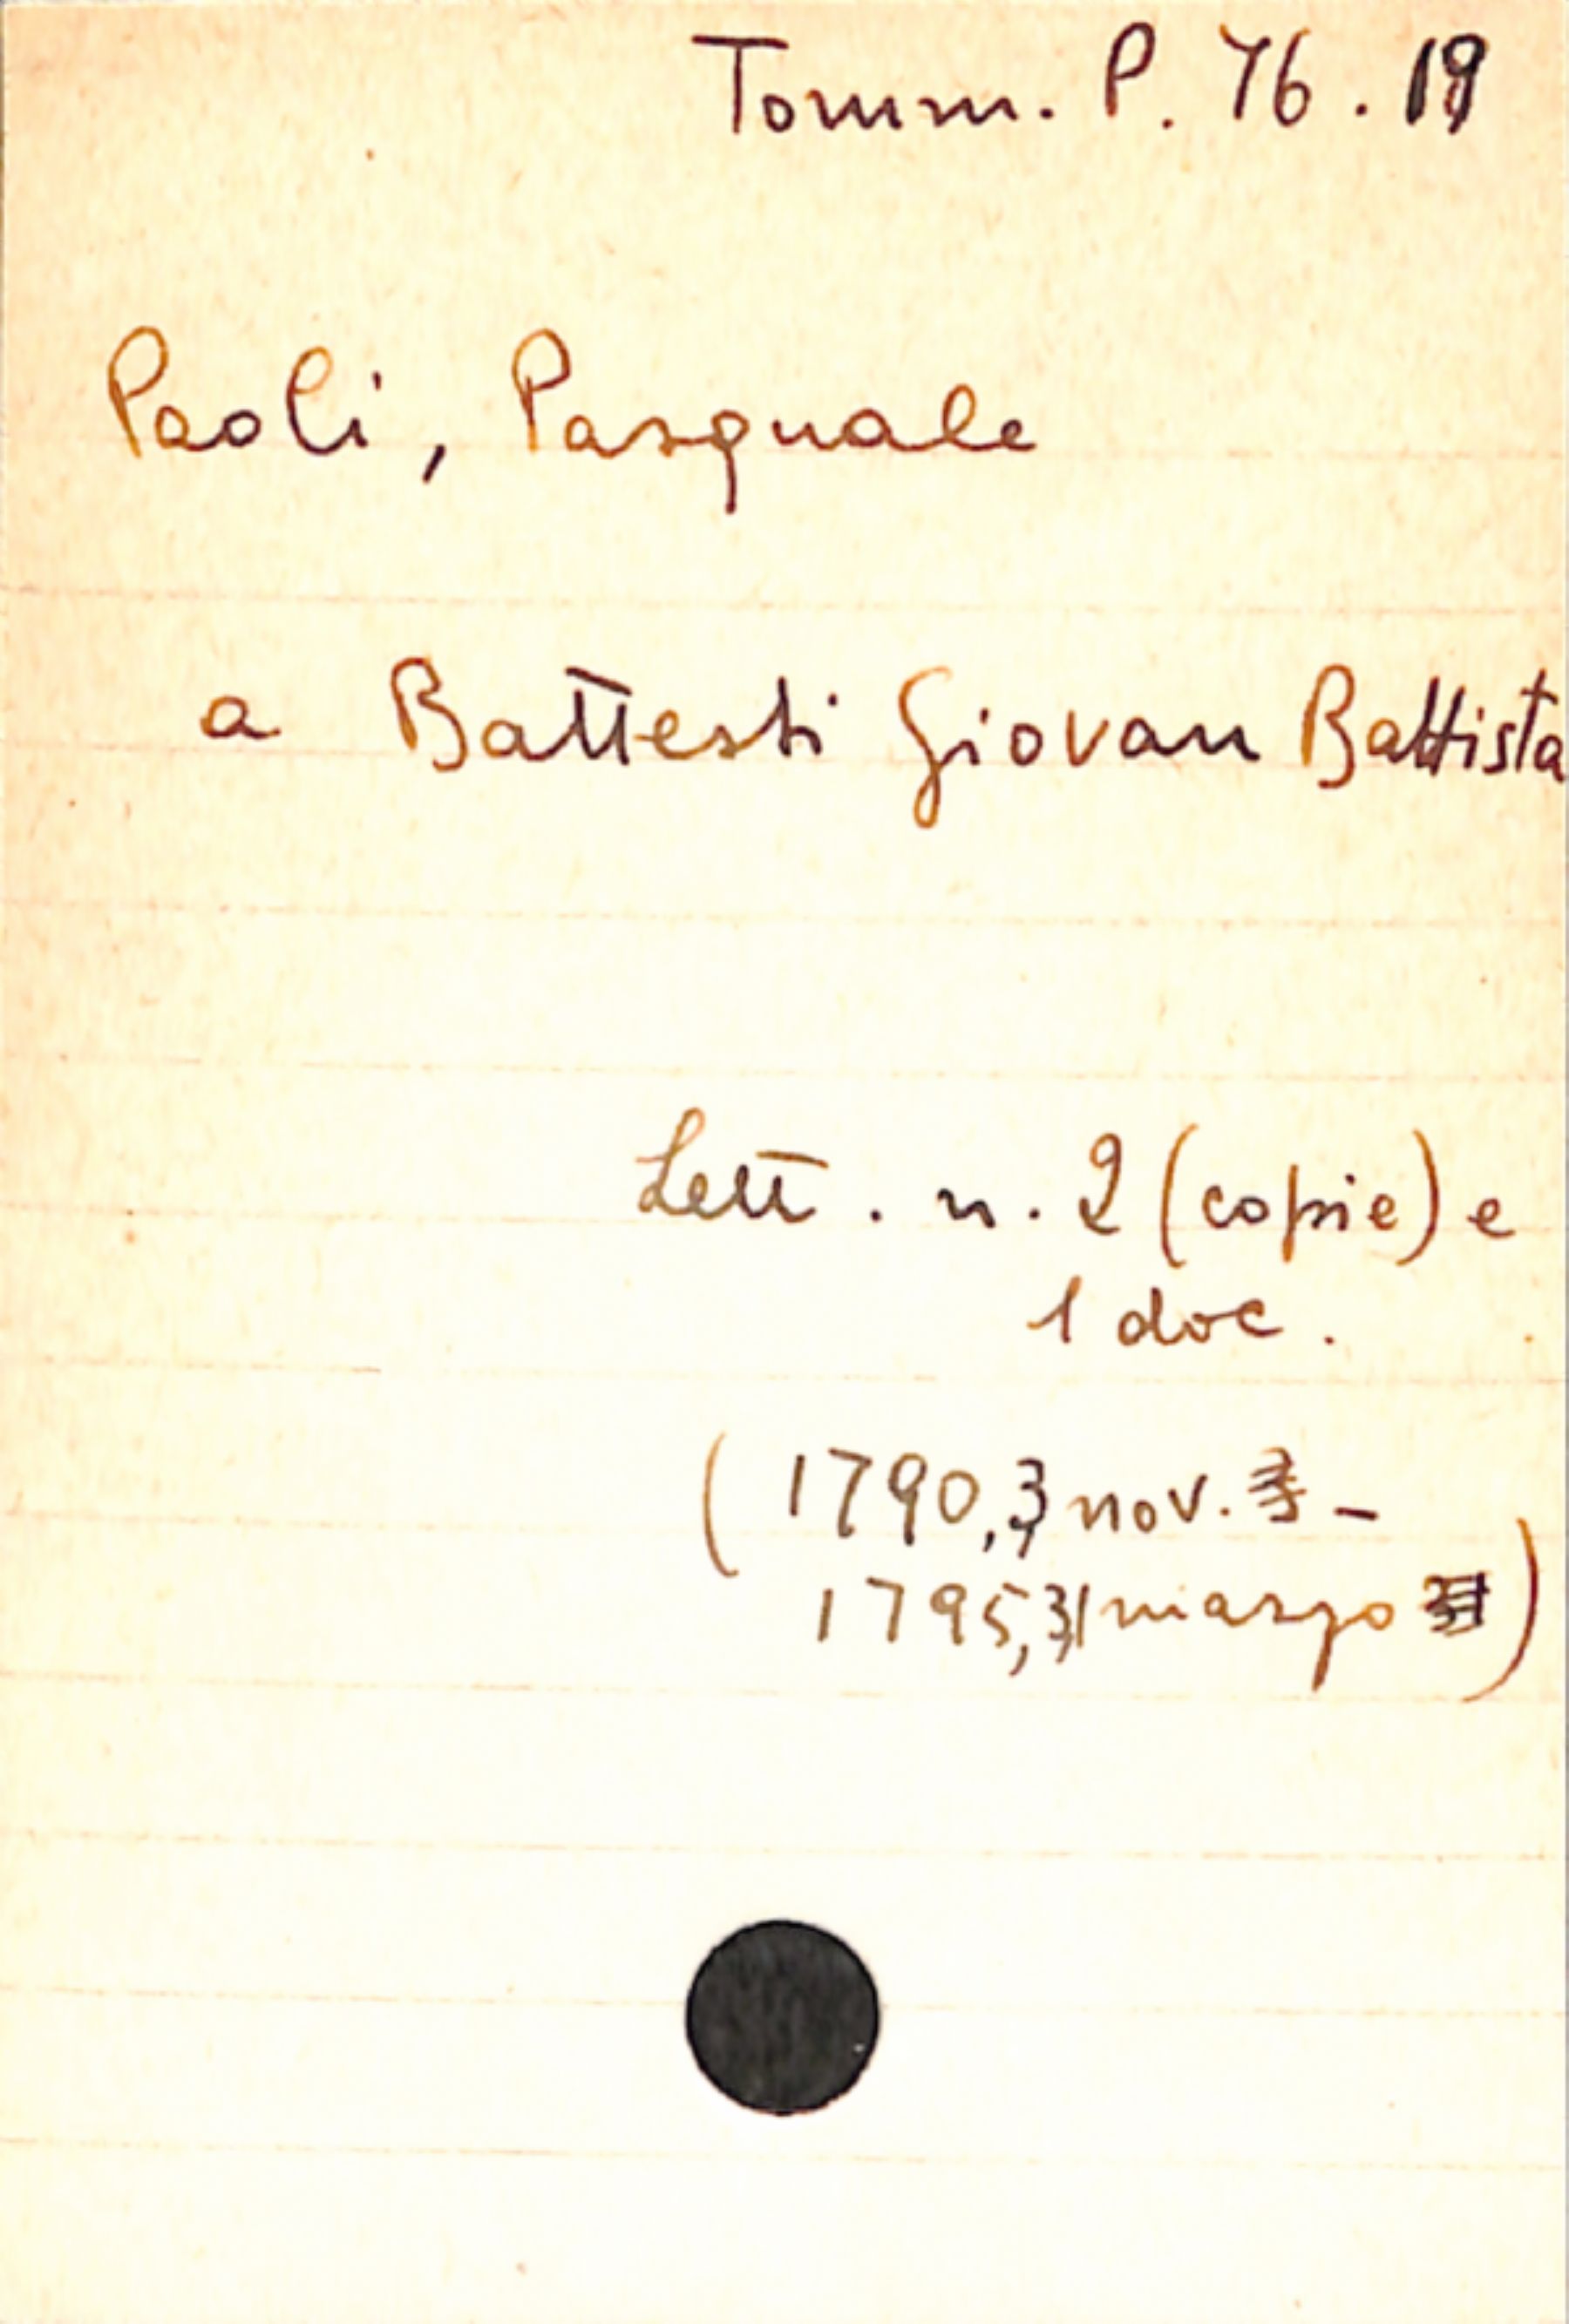 Tomm. P. 76. 19
Paoli, Pasquale
a Battesti Giovan Battista
Lett. n. 2 (copie) e
1 doc.
(1790, 3 nov. -
1795, 31 marzo)